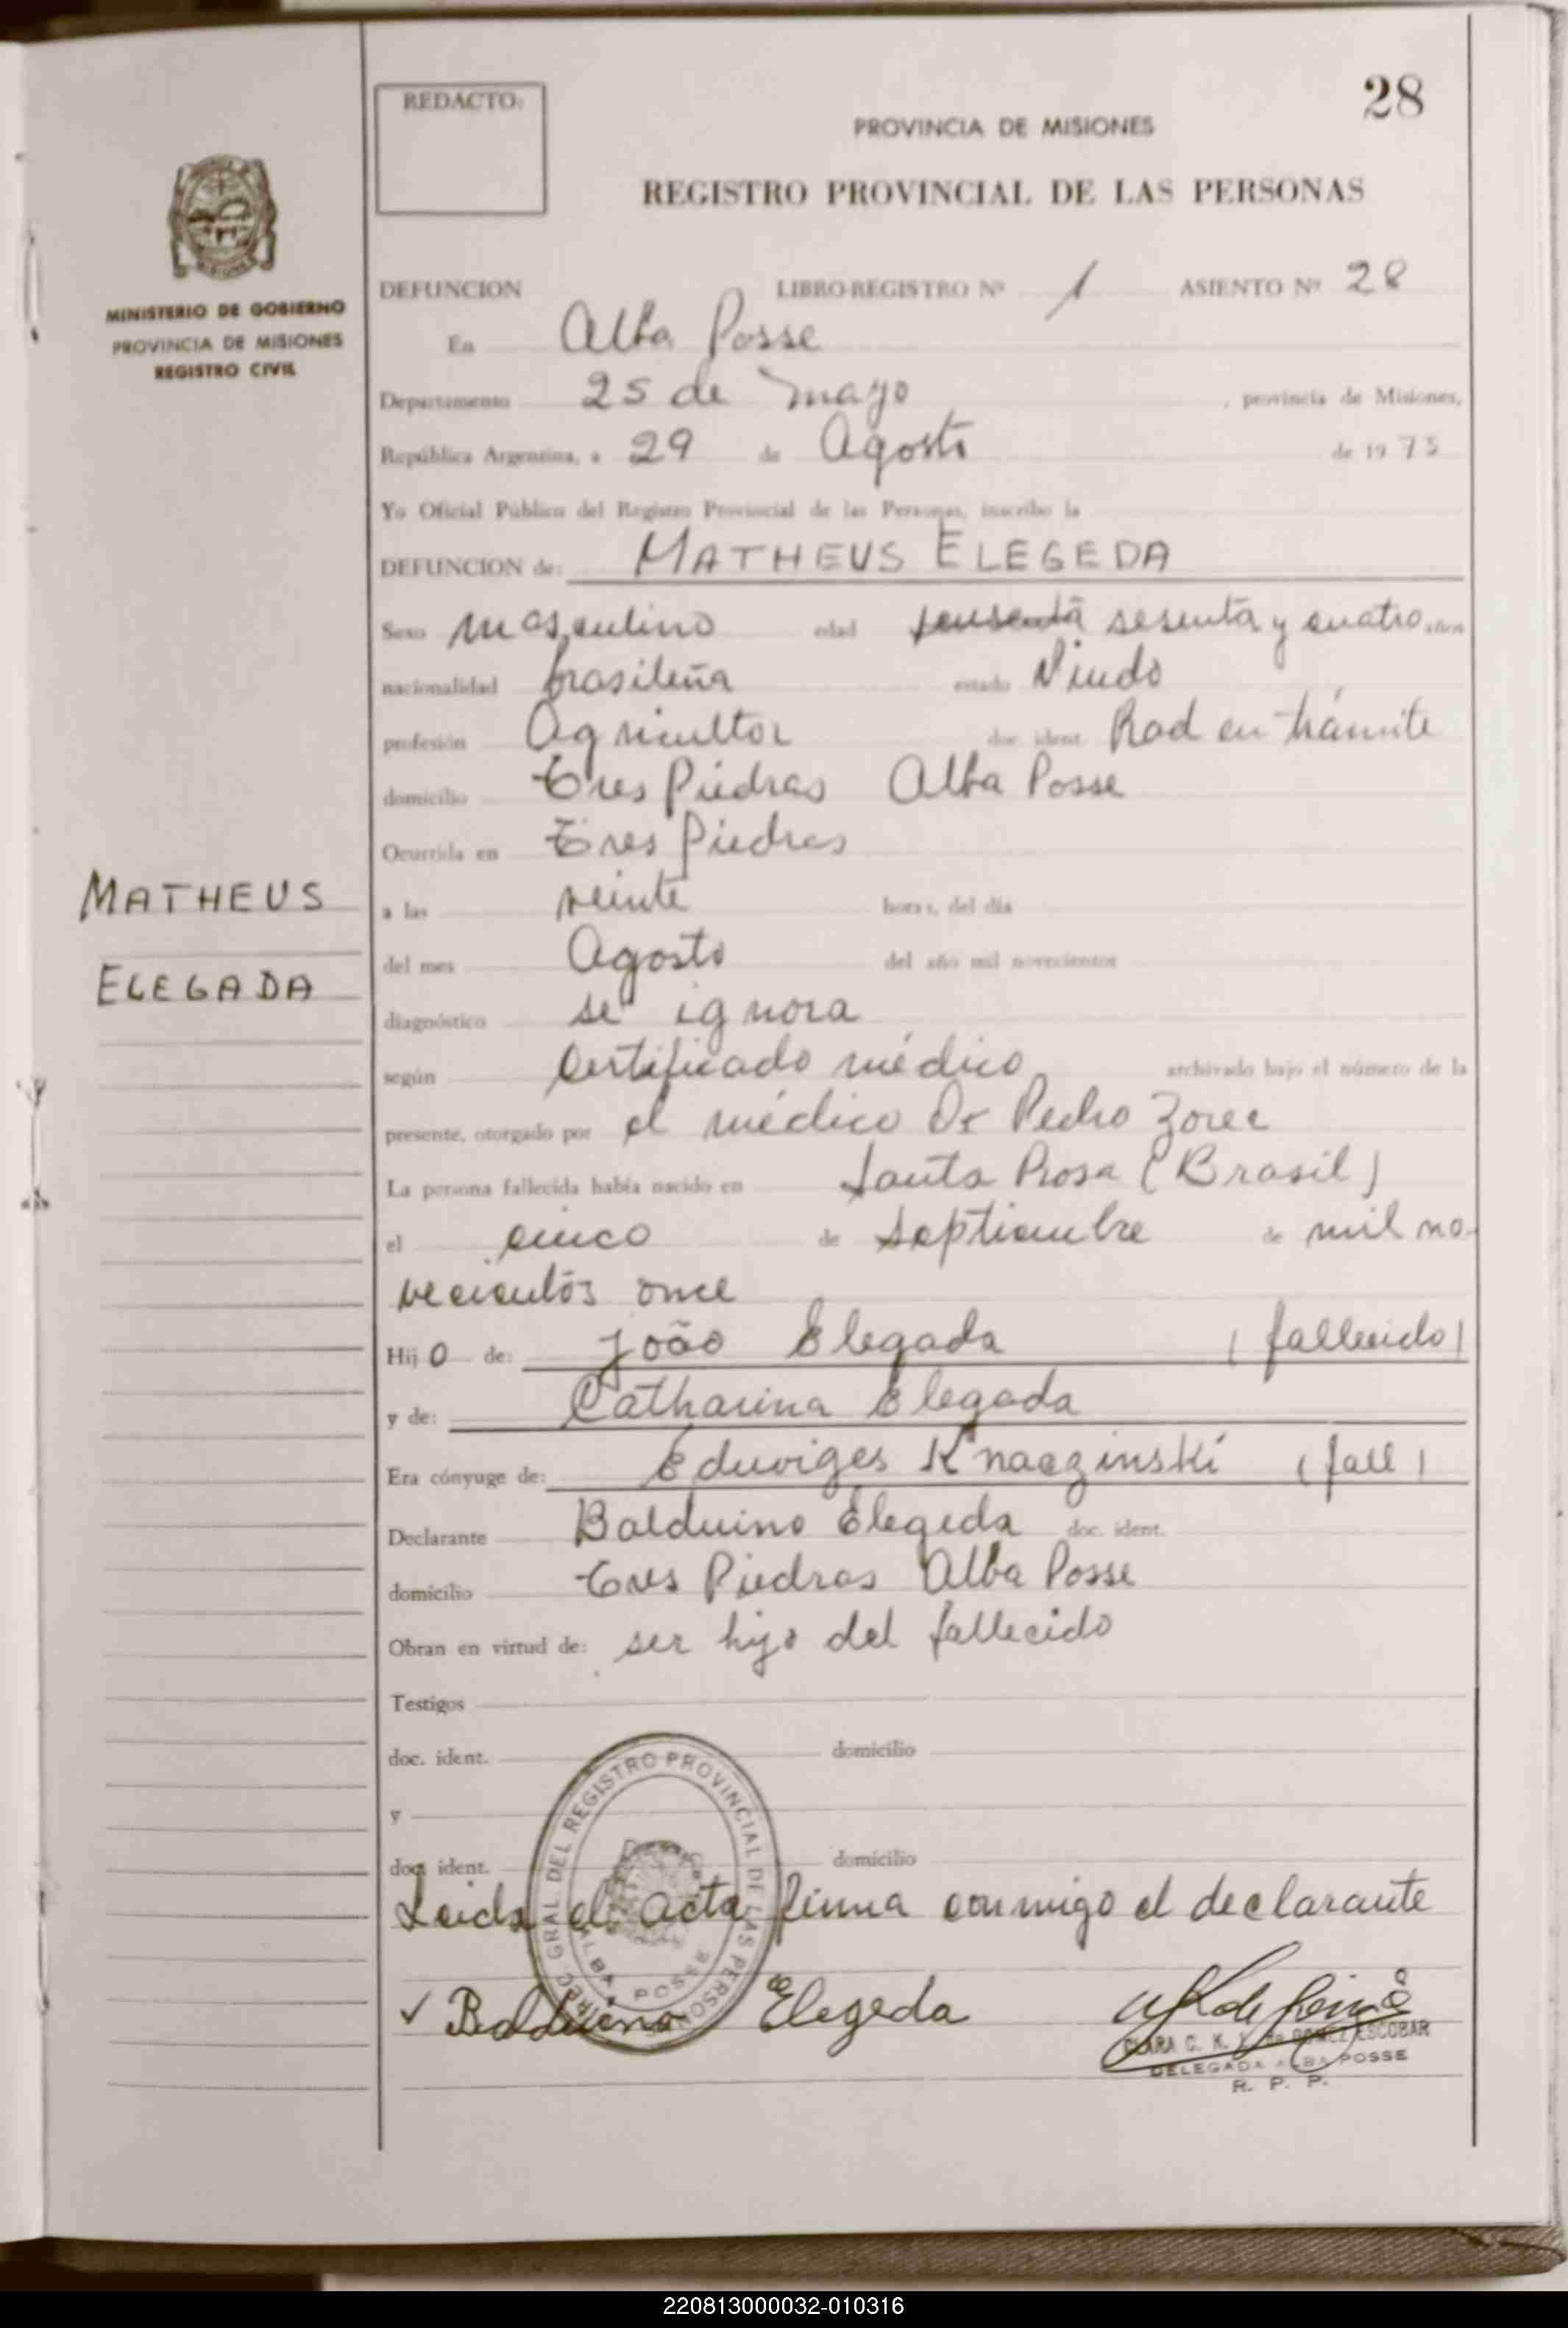 28
REDACTO:
PROVINCIA DE MISIONES
REGISTRO PROVINCIAL DE LAS PERSONAS
MINISTERIO DE GOBIERNO
PROVINCIA DE MISIONES
REGISTRO CIVIL
DEFUNCION LIBRO-REGISTRO Nº 1 ASIENTO Nº 28
En Alba Posse
Departamento 25 de mayo, provincia de Misiones,
República Argentina, a 29 de Agosto de 1975
Yo Oficial Público del Registro Provincial de las Personas, inscribo la
DEFUNCION de: MATHEUS ELEGEDA
Sexo masculino edad sesenta y cuatro años
nacionalidad brasileña estado Viudo
profesión Agricultor doc. ident. Rad en trámite
domicilio Tres Piedras Alba Posse
Ocurrida en Tres Piedras
MATHEUS
ELEGADA
a las veinte horas, del día
del mes Agosto del año mil novecientos
diagnóstico se ignora
según Certificado médico archivado bajo el número de la
presente, otorgado por el médico Dr Pedro Zorec
La persona fallecida había nacido en Santa Rosa (Brasil)
el cinco de Septiembre de mil no-
vecientos once
Hijo de: João Elegada (fallecido)
y de: Catharina Elegada
Era cónyuge de: Eduviges Knaczinski (fall)
Declarante Balduino Elegeda doc. ident.
domicilio Tres Piedras Alba Posse
Obran en virtud de: ser hijo del fallecido
Testigos
doc. ident. domicilio
y
doc. ident. domicilio
Leida el acta firma conmigo el declarante
DIREC. GRAL. DEL REGISTRO PROVINCIAL DE LAS PERSONAS
ALBA POSSE
Balduino Elegeda
CLARA C. K. GOMEZ ESCOBAR
DELEGADA ALBA POSSE
R. P. P.
220813000032-010316